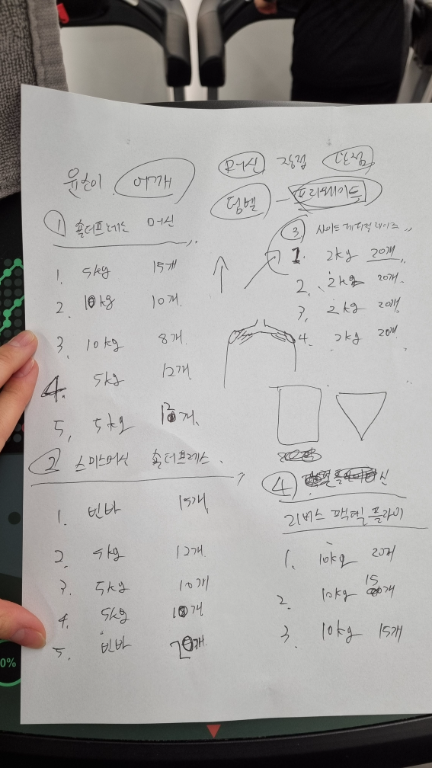 머신 장점 단점
어깨
덤벨 - 프리웨이트
① 숄더프레스 머신
1. 5kg 15개
2. 10kg 10개
3. 10kg 8개
4. 5kg 12개
5. 5kg 12개
② 스미스머신 숄더프레스
1. 빈바 15개
2. 5kg 12개
3. 5kg 10개
4. 5kg 10개
5. 빈바 20개
③ 사이드
1. 2kg 20개
2. 2kg 20개
3. 2kg 20개
4. 2kg 20개
④
리버스 팩덱 플라이
1. 10kg 20개
2. 10kg 15개
3. 10kg 15개
0%